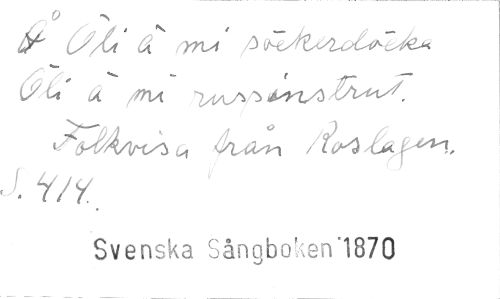 Å Öli ä mi söckerdocka
Öli ä mi russinstrut.
Folkvisa från Roslagen.
S. 414.
Svenska Sångboken 1870